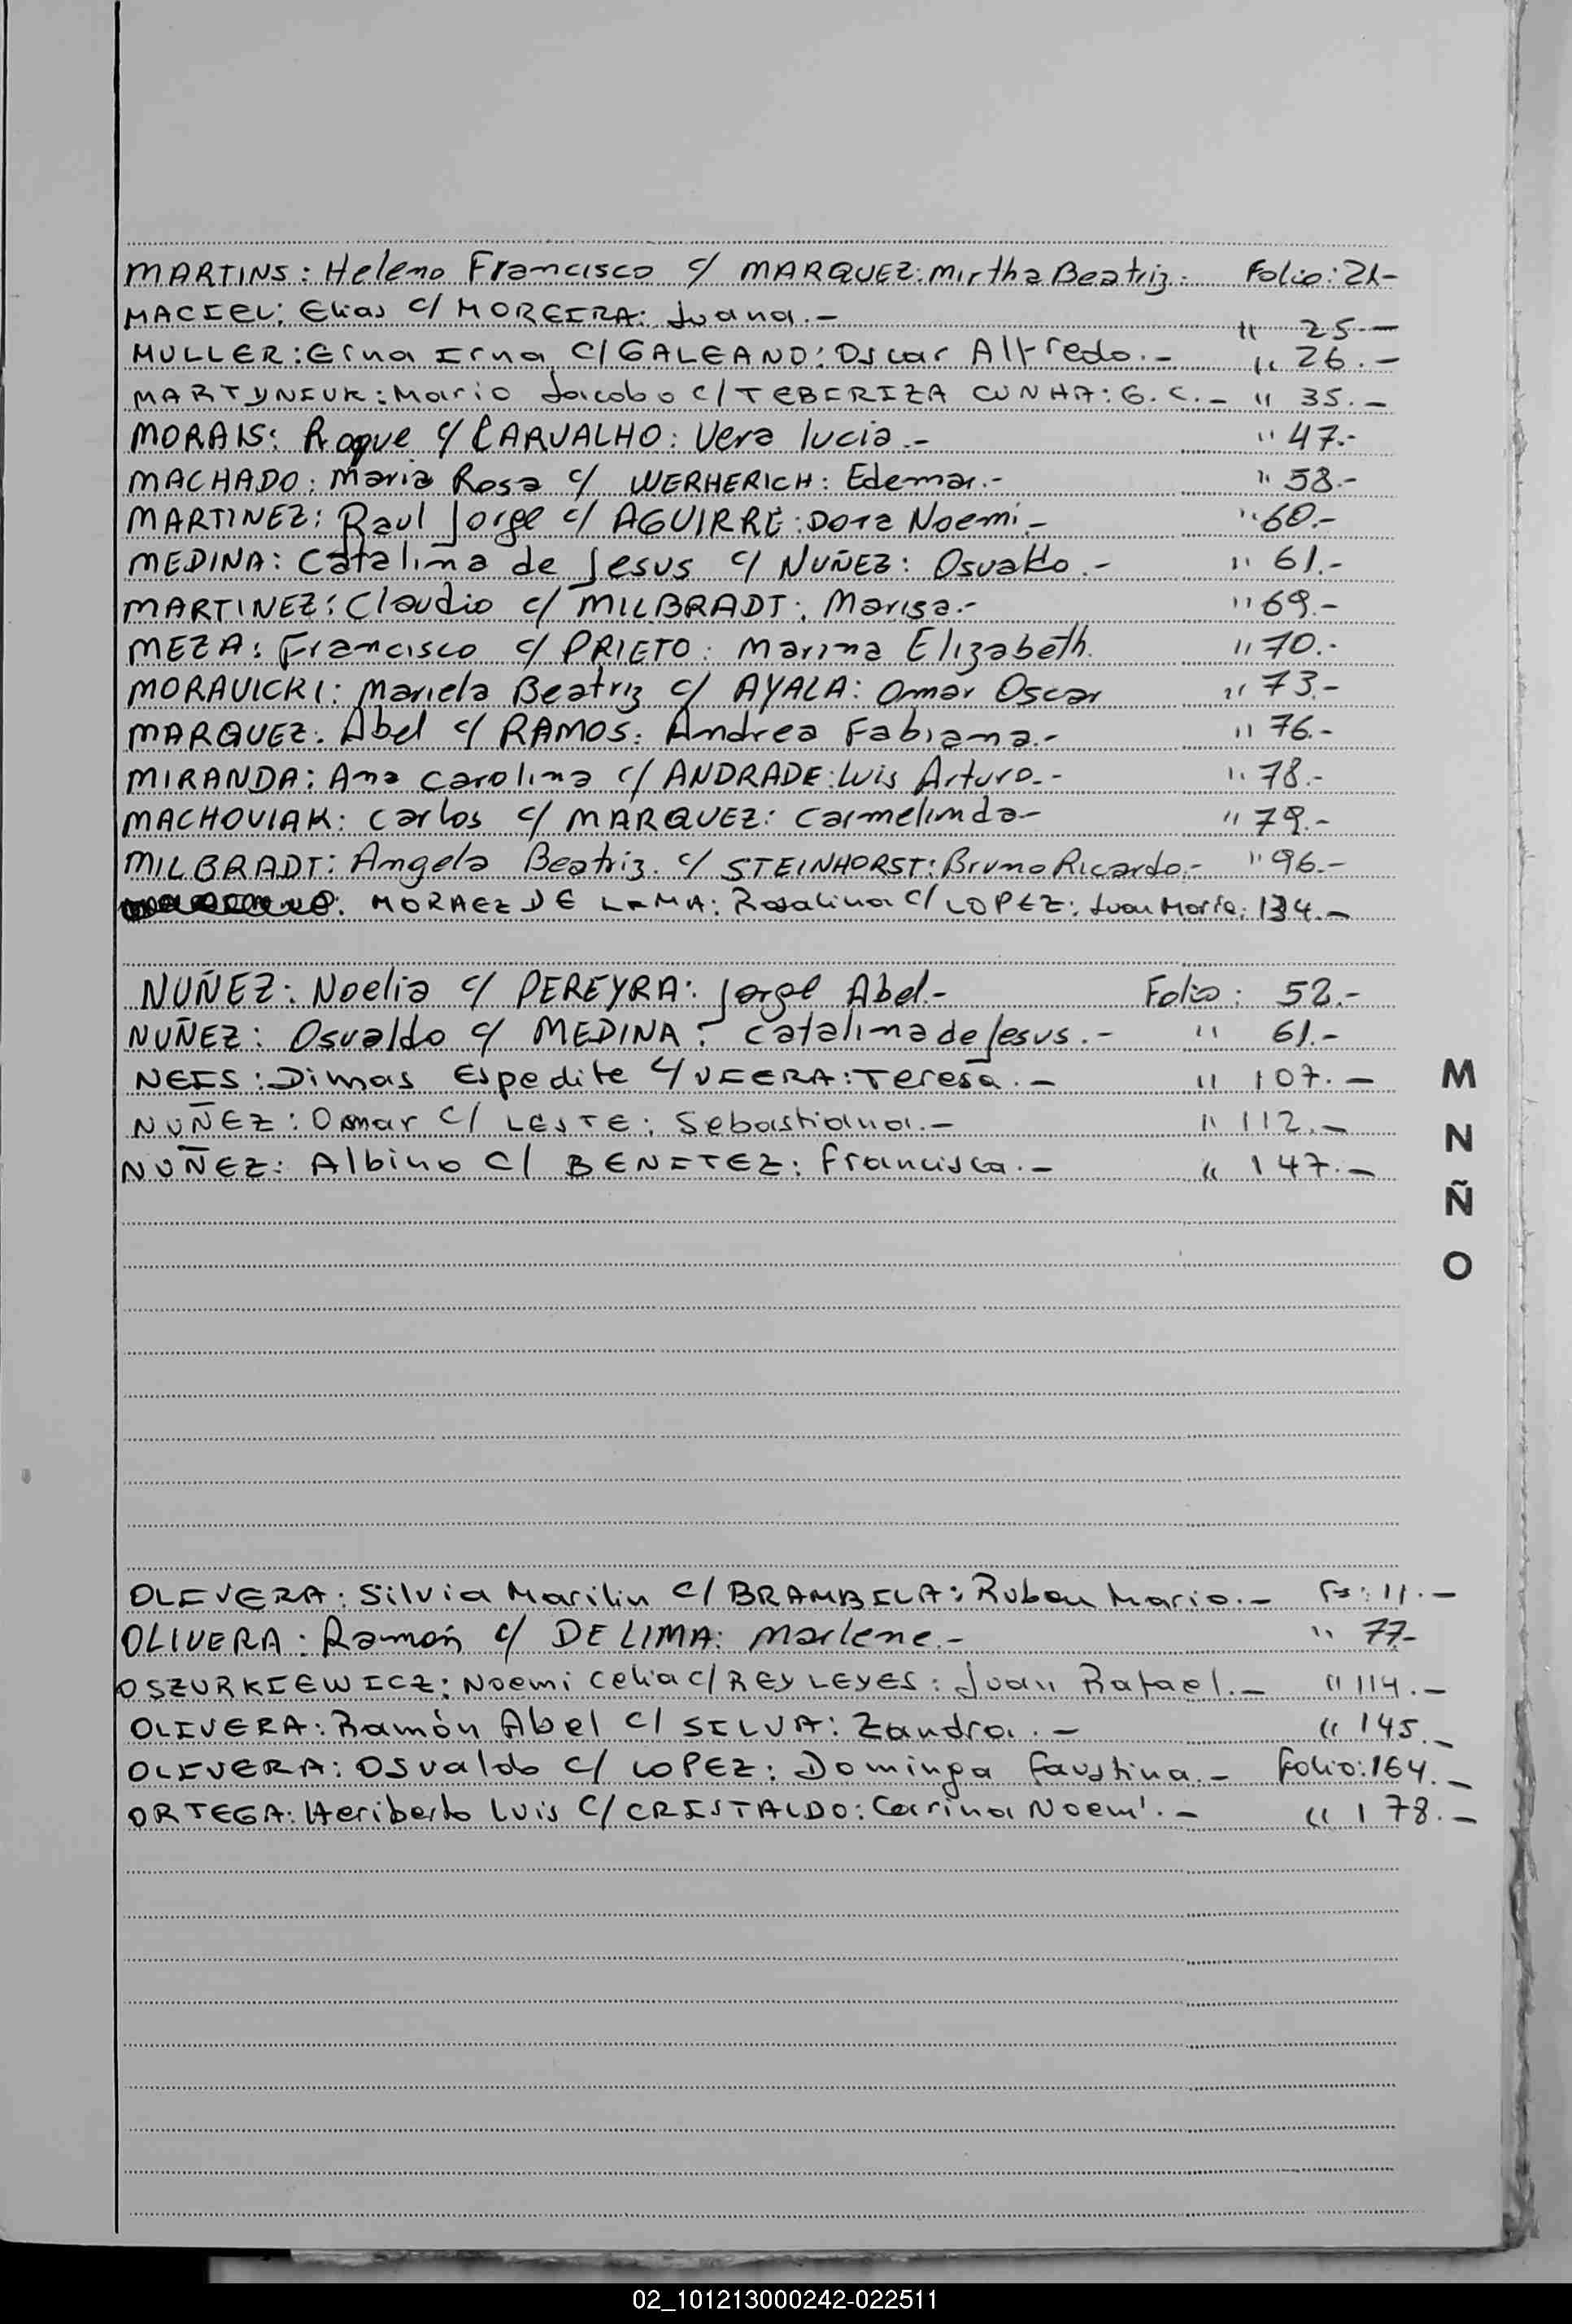 MARTINS: Heleno Francisco c/ MARQUEZ: Mirtha Beatriz.- Folio: 21-
MACIEL: Elias c/ MOREIRA: Juana.- " 25.-
MULLER: Erna Irna c/ GALEANO: Oscar Alfredo.- " 26.-
MARTYNIUK: Mario Jacobo c/ TEBERIZA CUNHA: G. C.- " 35.-
MORAIS: Roque c/ CARVALHO: Vera lucia.- " 47.-
MACHADO: Maria Rosa c/ WERHERICH: Edemar.- " 58.-
MARTINEZ: Raul Jorge c/ AGUIRRE: Dora Noemi.- " 60.-
MEDINA: Catalina de Jesus c/ NUÑEZ: Osvaldo.- " 61.-
MARTINEZ: Claudio c/ MILBRADT: Marisa.- " 69.-
MEZA: Francisco c/ PRIETO: Marina Elizabeth. " 70.-
MORAVICKI: Mariela Beatriz c/ AYALA: Omar Oscar " 73.-
MARQUEZ: Abel c/ RAMOS: Andrea Fabiana.- " 76.-
MIRANDA: Ana Carolina c/ ANDRADE: Luis Arturo.- " 78.-
MACHOVIAK: Carlos c/ MARQUEZ: Carmelinda- " 79.-
MILBRADT: Angela Beatriz. c/ STEINHORST: Bruno Ricardo.- " 96.-
MORAEZ DE LAMA: Rosalina c/ LOPEZ: Juan Maria: 134.-
NUÑEZ: Noelia c/ PEREYRA: Jorge Abel.- Folio: 52.-
NUÑEZ: Osvaldo c/ MEDINA: Catalina de Jesus.- " 61.-
NEIS: Dimas Espedite c/ VIERA: Teresa.- " 107.-
NUÑEZ: Omar c/ LESTE: Sebastiana.- " 112.-
NUÑEZ: Albino c/ BENITEZ: Francisca.- " 147.-
M
N
Ñ
O
OLIVERA: Silvia Marilin c/ BRAMBILA: Ruben Mario.- Fs: 11.-
OLIVERA: Ramón c/ DE LIMA: Marlene.- " 77-
OSZURKIEWICZ: Noemi Celia c/ REY LEYES: Juan Rafael.- " 114.-
OLIVERA: Ramón Abel c/ SILVA: Zandra.- " 145.-
OLIVERA: Osvaldo c/ LOPEZ: Dominga Faustina.- Folio: 164.-
ORTEGA: Heriberto Luis c/ CRISTALDO: Carina Noemí.- " 178.-
02_101213000242-022511